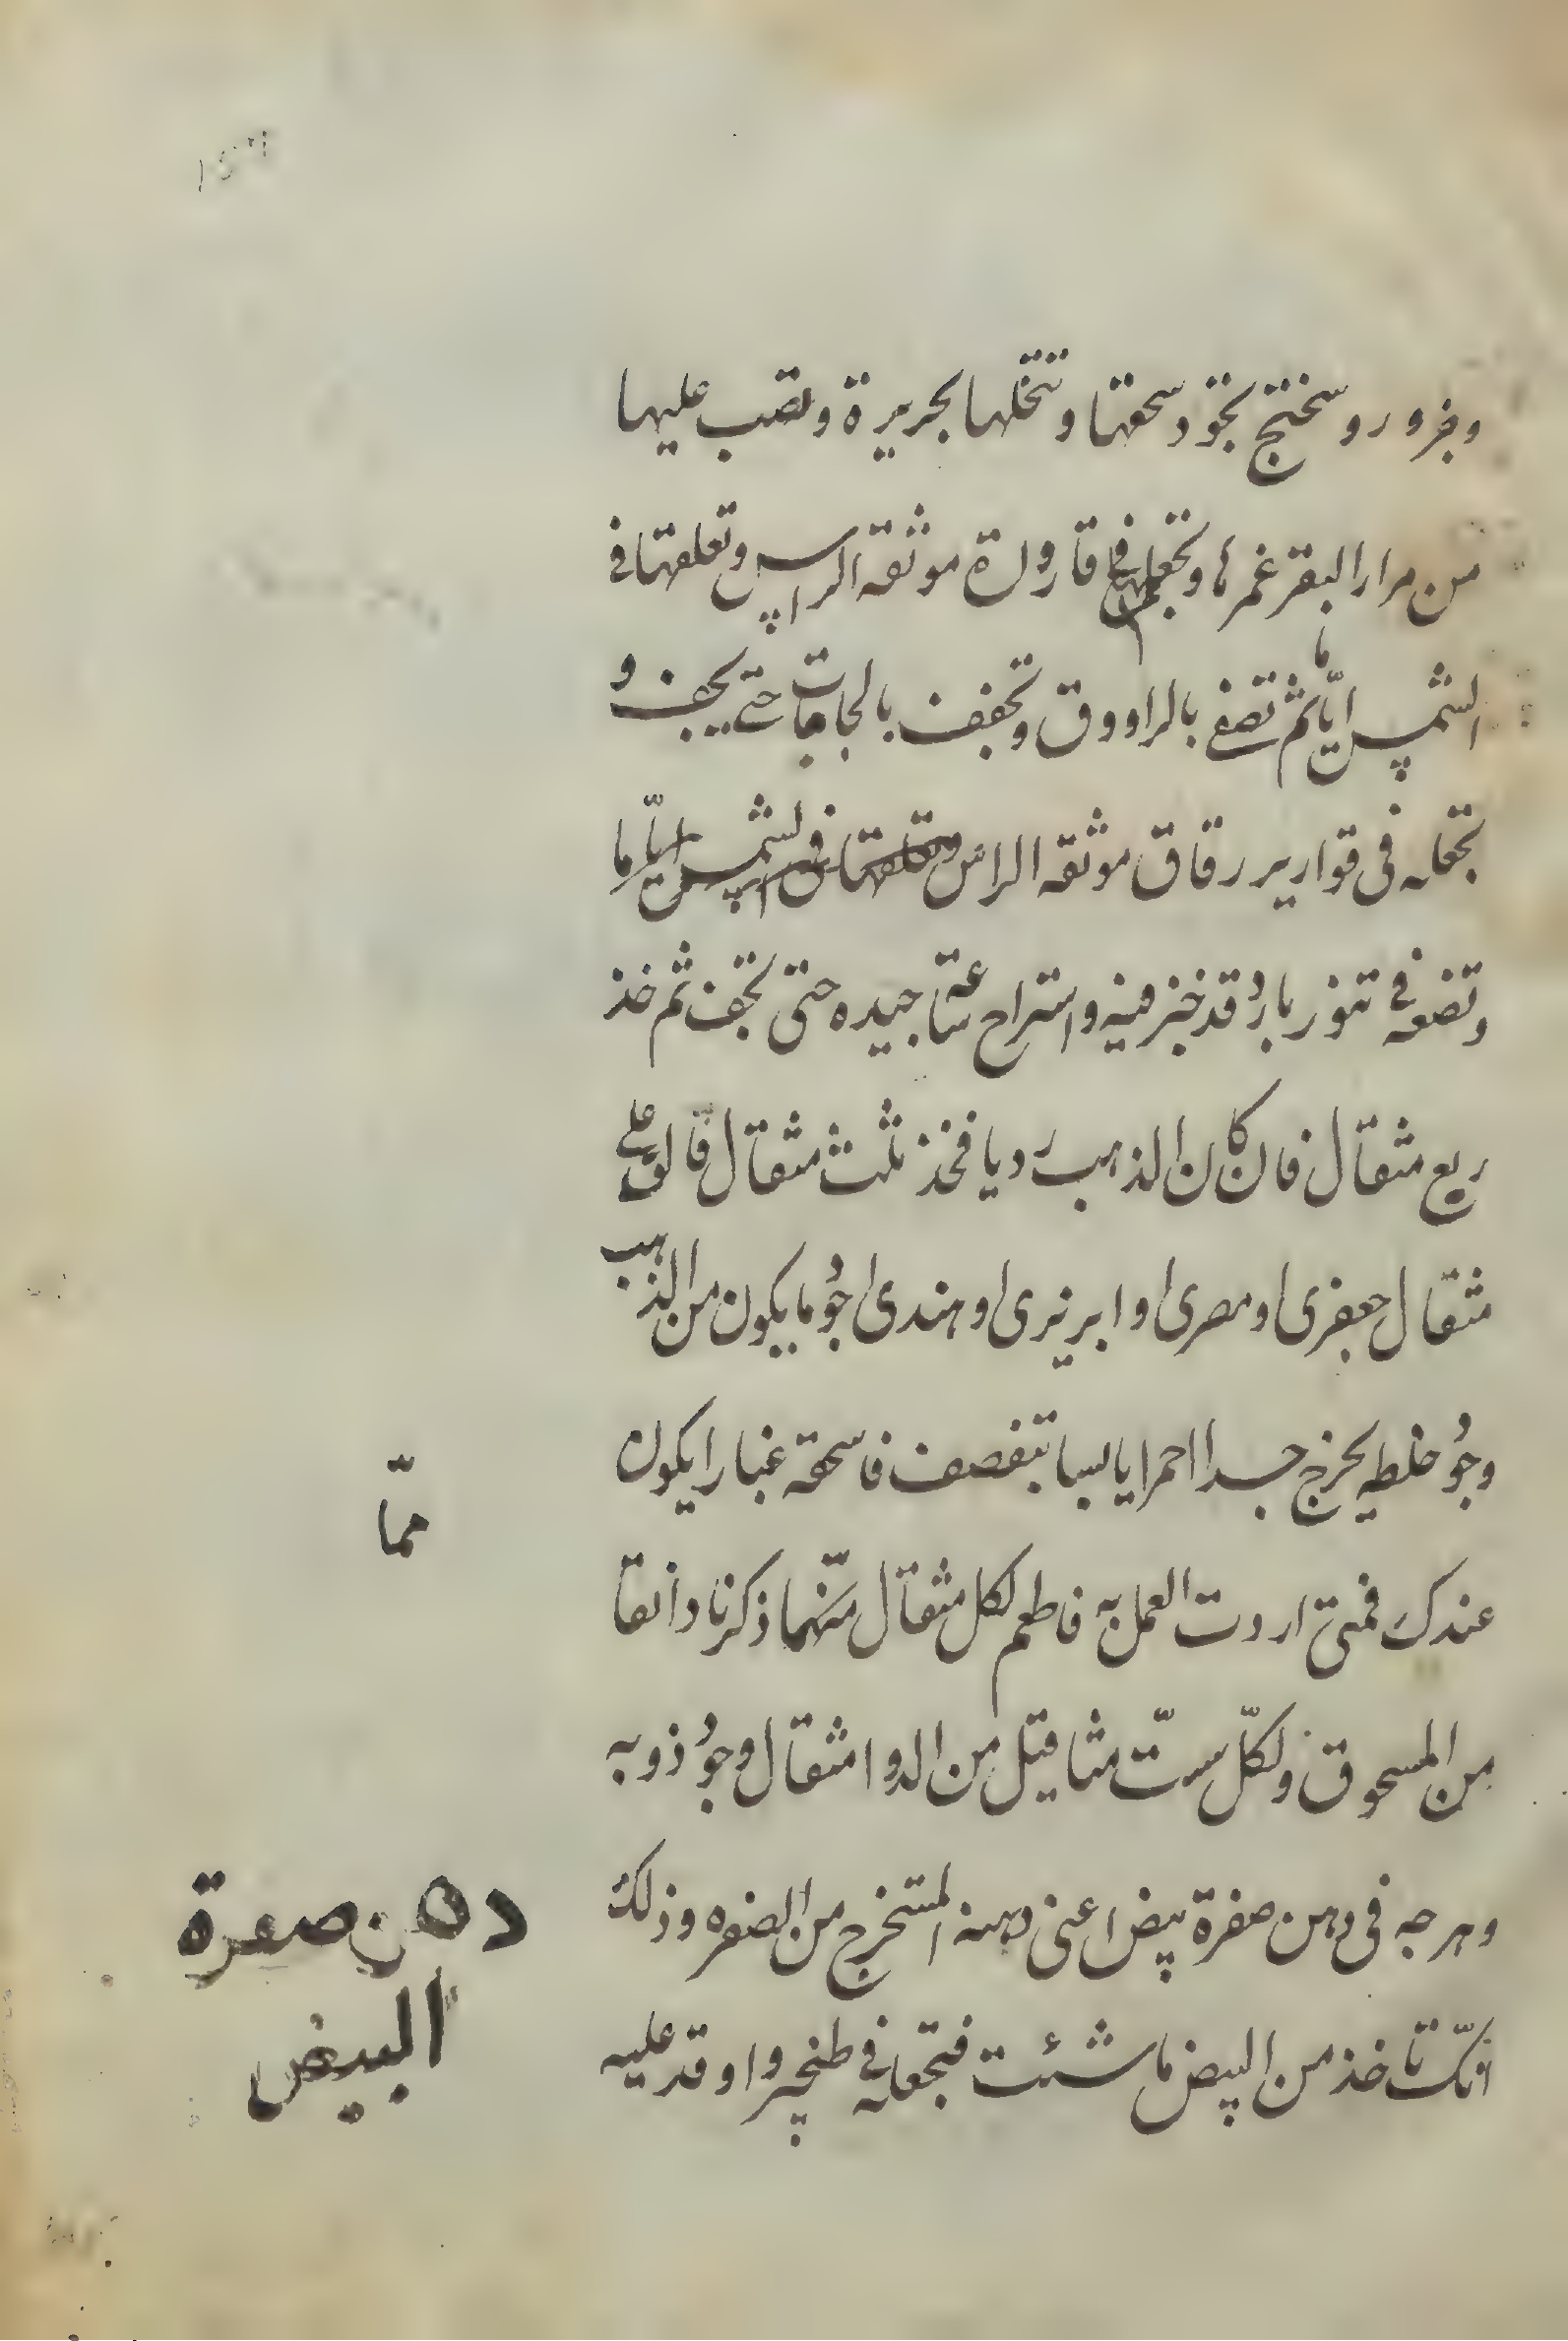 وجزو روسختج تجود سحقها و تنخلها بحريرة وتصب عليها
من مرار البقر غمرها وتجعلها في قارورة موثقه الراس وتعلقها في
الشمس اياما ثم تصفى بالراووق وتجفف بالجامات حتى يجف و
تجعله فى قوارير رقاق موثقه الراس وتعلقها فى الشمس اياما
وتضعه فى تنور بارد قد خبز فيه واستراح ساعة جيده حتى تجف ثم خذ
ربع مثقال فان كان الذهب رديا فخذ ثلث مثقال فالق على
مثقال جعفرى او مصرى او ابريزى او هندى اجود ما يكون من الذهب
وجود خلطه يخرج جسدا احمر يابسا يتقصف فاسحقه غبارا يكون
عندك فمتى اردت العمل به فاطعم لكل مثقال منهما ذكرنا دانقا
مما
من المسحوق ولكل ست مثاقيل من الدوا مثقال وجود ذوبه
وهرجه فى دهن صفرة بيض اعنى دهنه المستخرج من الصفره وذلك
دهن صفرة
البيض
انك تاخذ من البيض ما شئت فتجعله في طنجير واوقد عليه